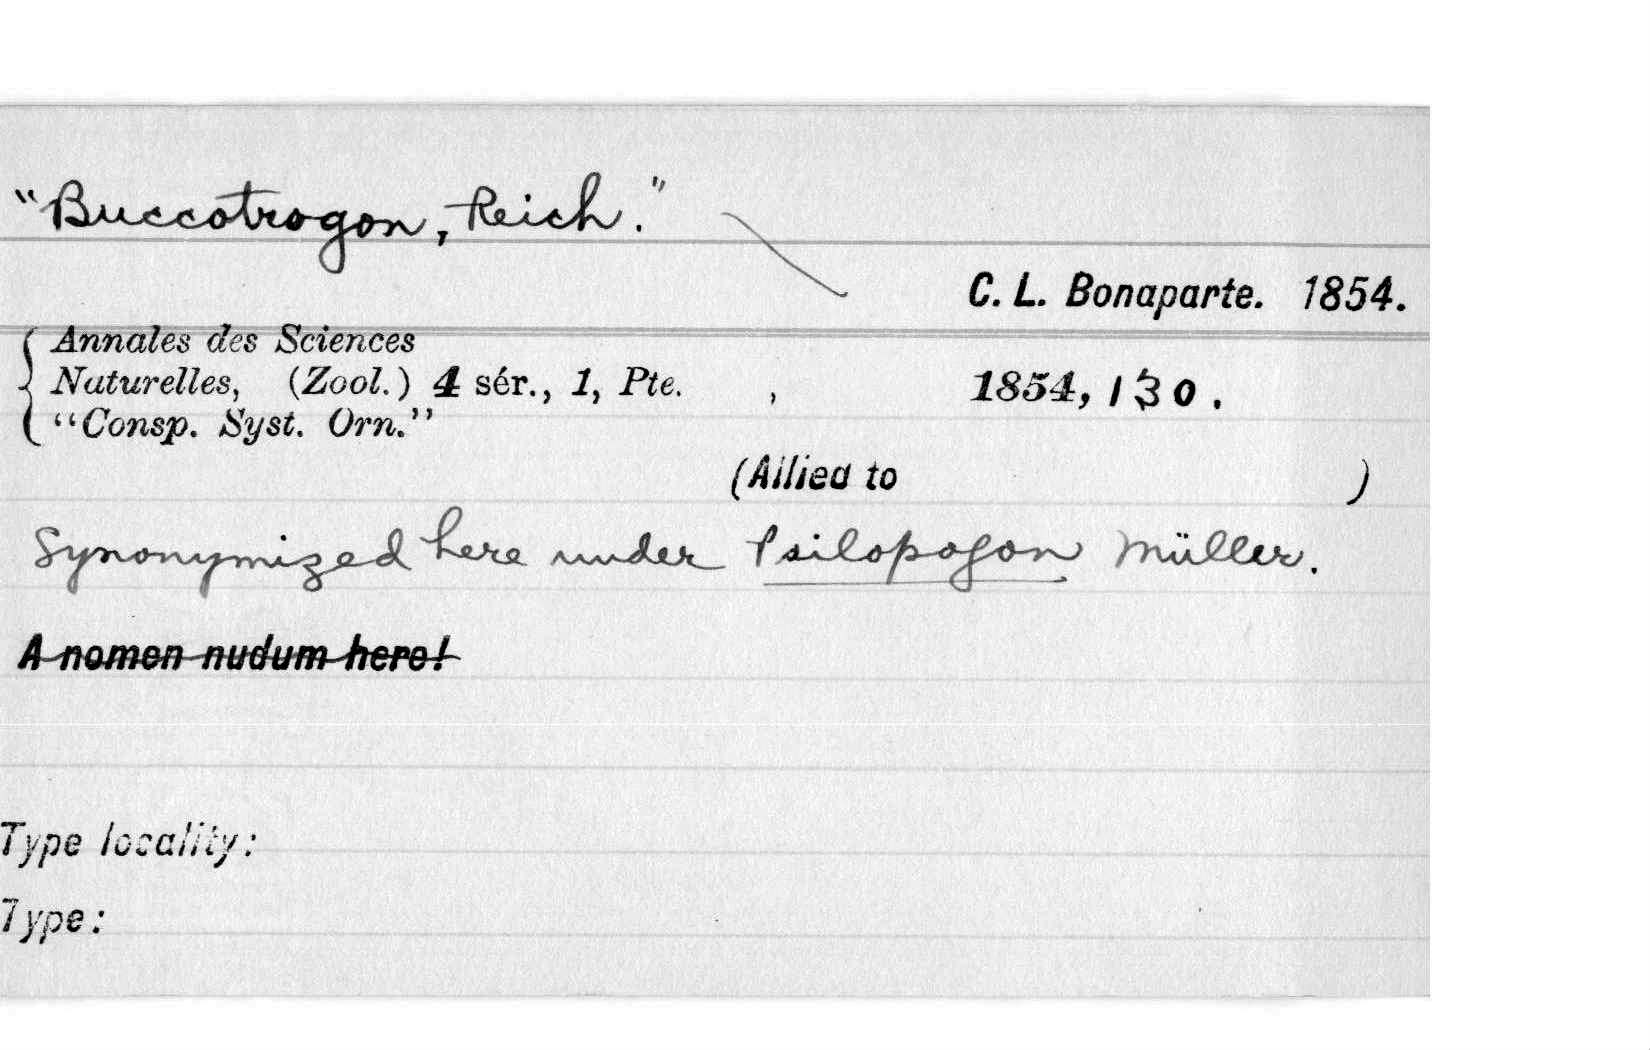 "Buccotrogon, Reich."
C. L. Bonaparte. 1854.
Annales des Sciences
Naturelles, (Zool.) 4 sér., 1, Pte. , 1854, 130.
"Consp. Syst. Orn."
(Allied to )
Synonymized here under Psilopogon Müller.
A nomen nudum here!
Type locality:
Type: